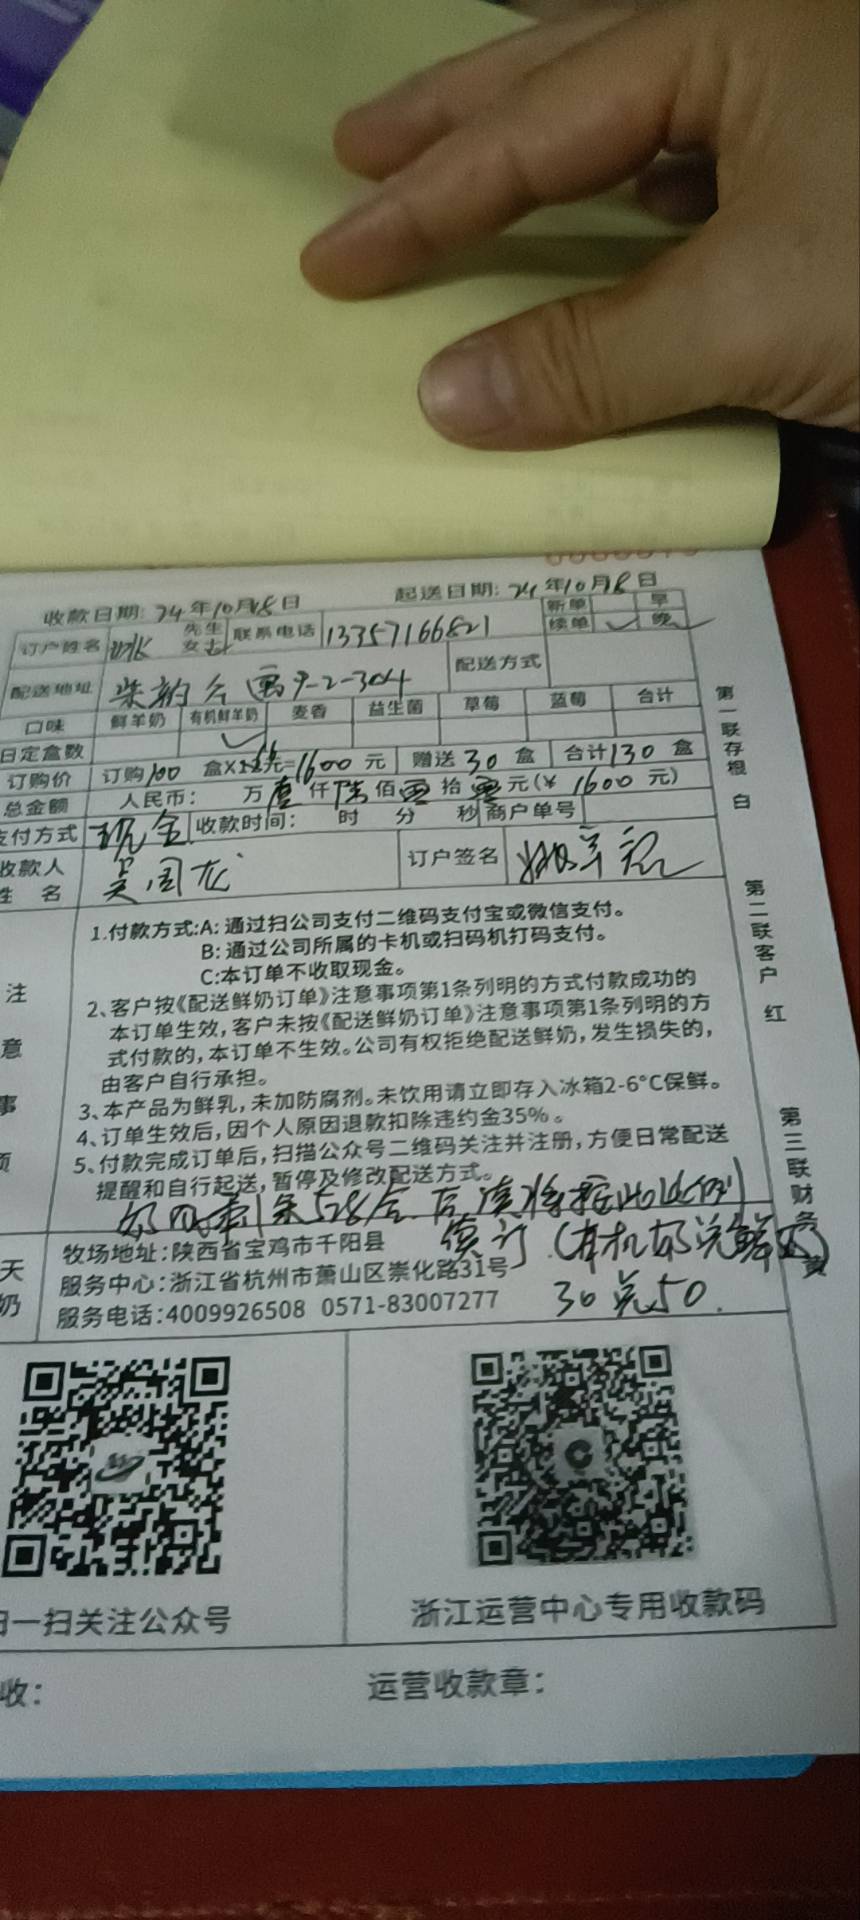 收款日期: 24年10月8日 起送日期: 24年10月8日
订户姓名 姚 先生 女士 联系电话 13357166821 新单 早
续单 ✓ 晚 ✓
配送地址 9-2-304 配送方式
口味 鲜羊奶 有机鲜羊奶 麦香 益生菌 草莓 蓝莓 合计
日定盒数 ✓
订购价 订购100 盒X 元=1600 元 赠送 30 盒 合计130 盒
总金额 人民币: 万壹仟陆佰 拾 元(¥ 1600 元)
支付方式 现金 收款时间: 时 分 秒 商户单号
收款人 姓名 吴周龙 订户签名
注
意
事
项
1.付款方式:A: 通过扫公司支付二维码支付宝或微信支付。
B: 通过公司所属的卡机或扫码机打码支付。
C:本订单不收取现金。
2、客户按《配送鲜奶订单》注意事项第1条列明的方式付款成功的
本订单生效, 客户未按《配送鲜奶订单》注意事项第1条列明的方
式付款的, 本订单不生效。公司有权拒绝配送鲜奶, 发生损失的,
由客户自行承担。
3、本产品为鲜乳, 未加防腐剂。未饮用请立即存入冰箱2-6°C保鲜。
4、订单生效后, 因个人原因退款扣除违约金35%。
5、付款完成订单后, 扫描公众号二维码关注并注册, 方便日常配送
提醒和自行起送, 暂停及修改配送方式。
按此比例
续订 (有机奶
30 50.
天
奶
牧场地址: 陕西省宝鸡市千阳县
服务中心: 浙江省杭州市萧山区崇化路31号
服务电话: 4009926508 0571-83007277
扫一扫关注公众号
浙江运营中心专用收款码
收:
运营收款章:
第一联存根 白
第二联客户 红
第三联财务 黄